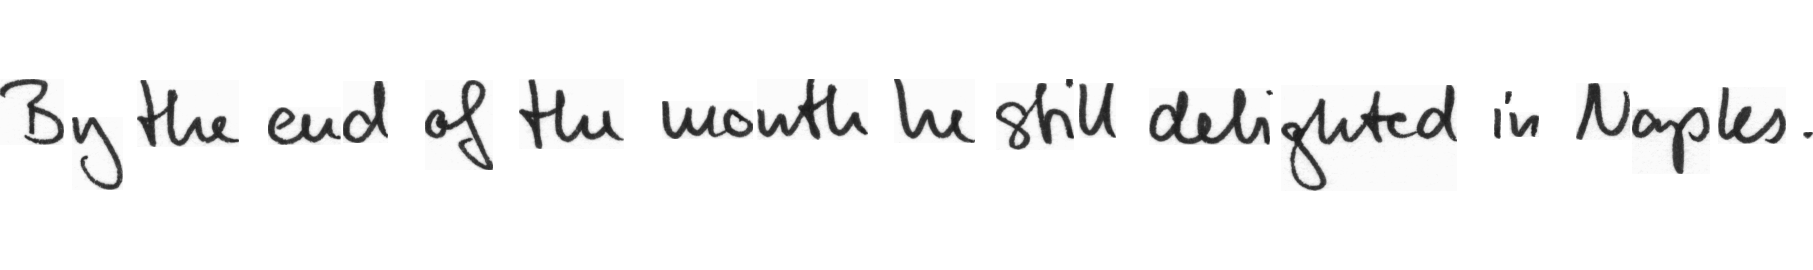 By the end of the month he still delighted in Naples.